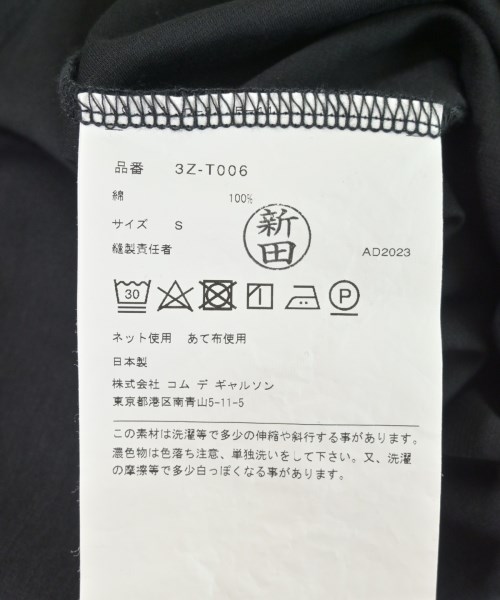 品番 3Z-T006
綿 100%
サイズ S
縫製責任者 新田 AD2023
30 P
ネット使用 あて布使用
日本製
株式会社 コム デ ギャルソン
東京都港区南青山5-11-5
この素材は洗濯等で多少の伸縮や斜行する事があります。
濃色物は色落ち注意、単独洗いをして下さい。又、洗濯
の摩擦等で多少白っぽくなる事があります。